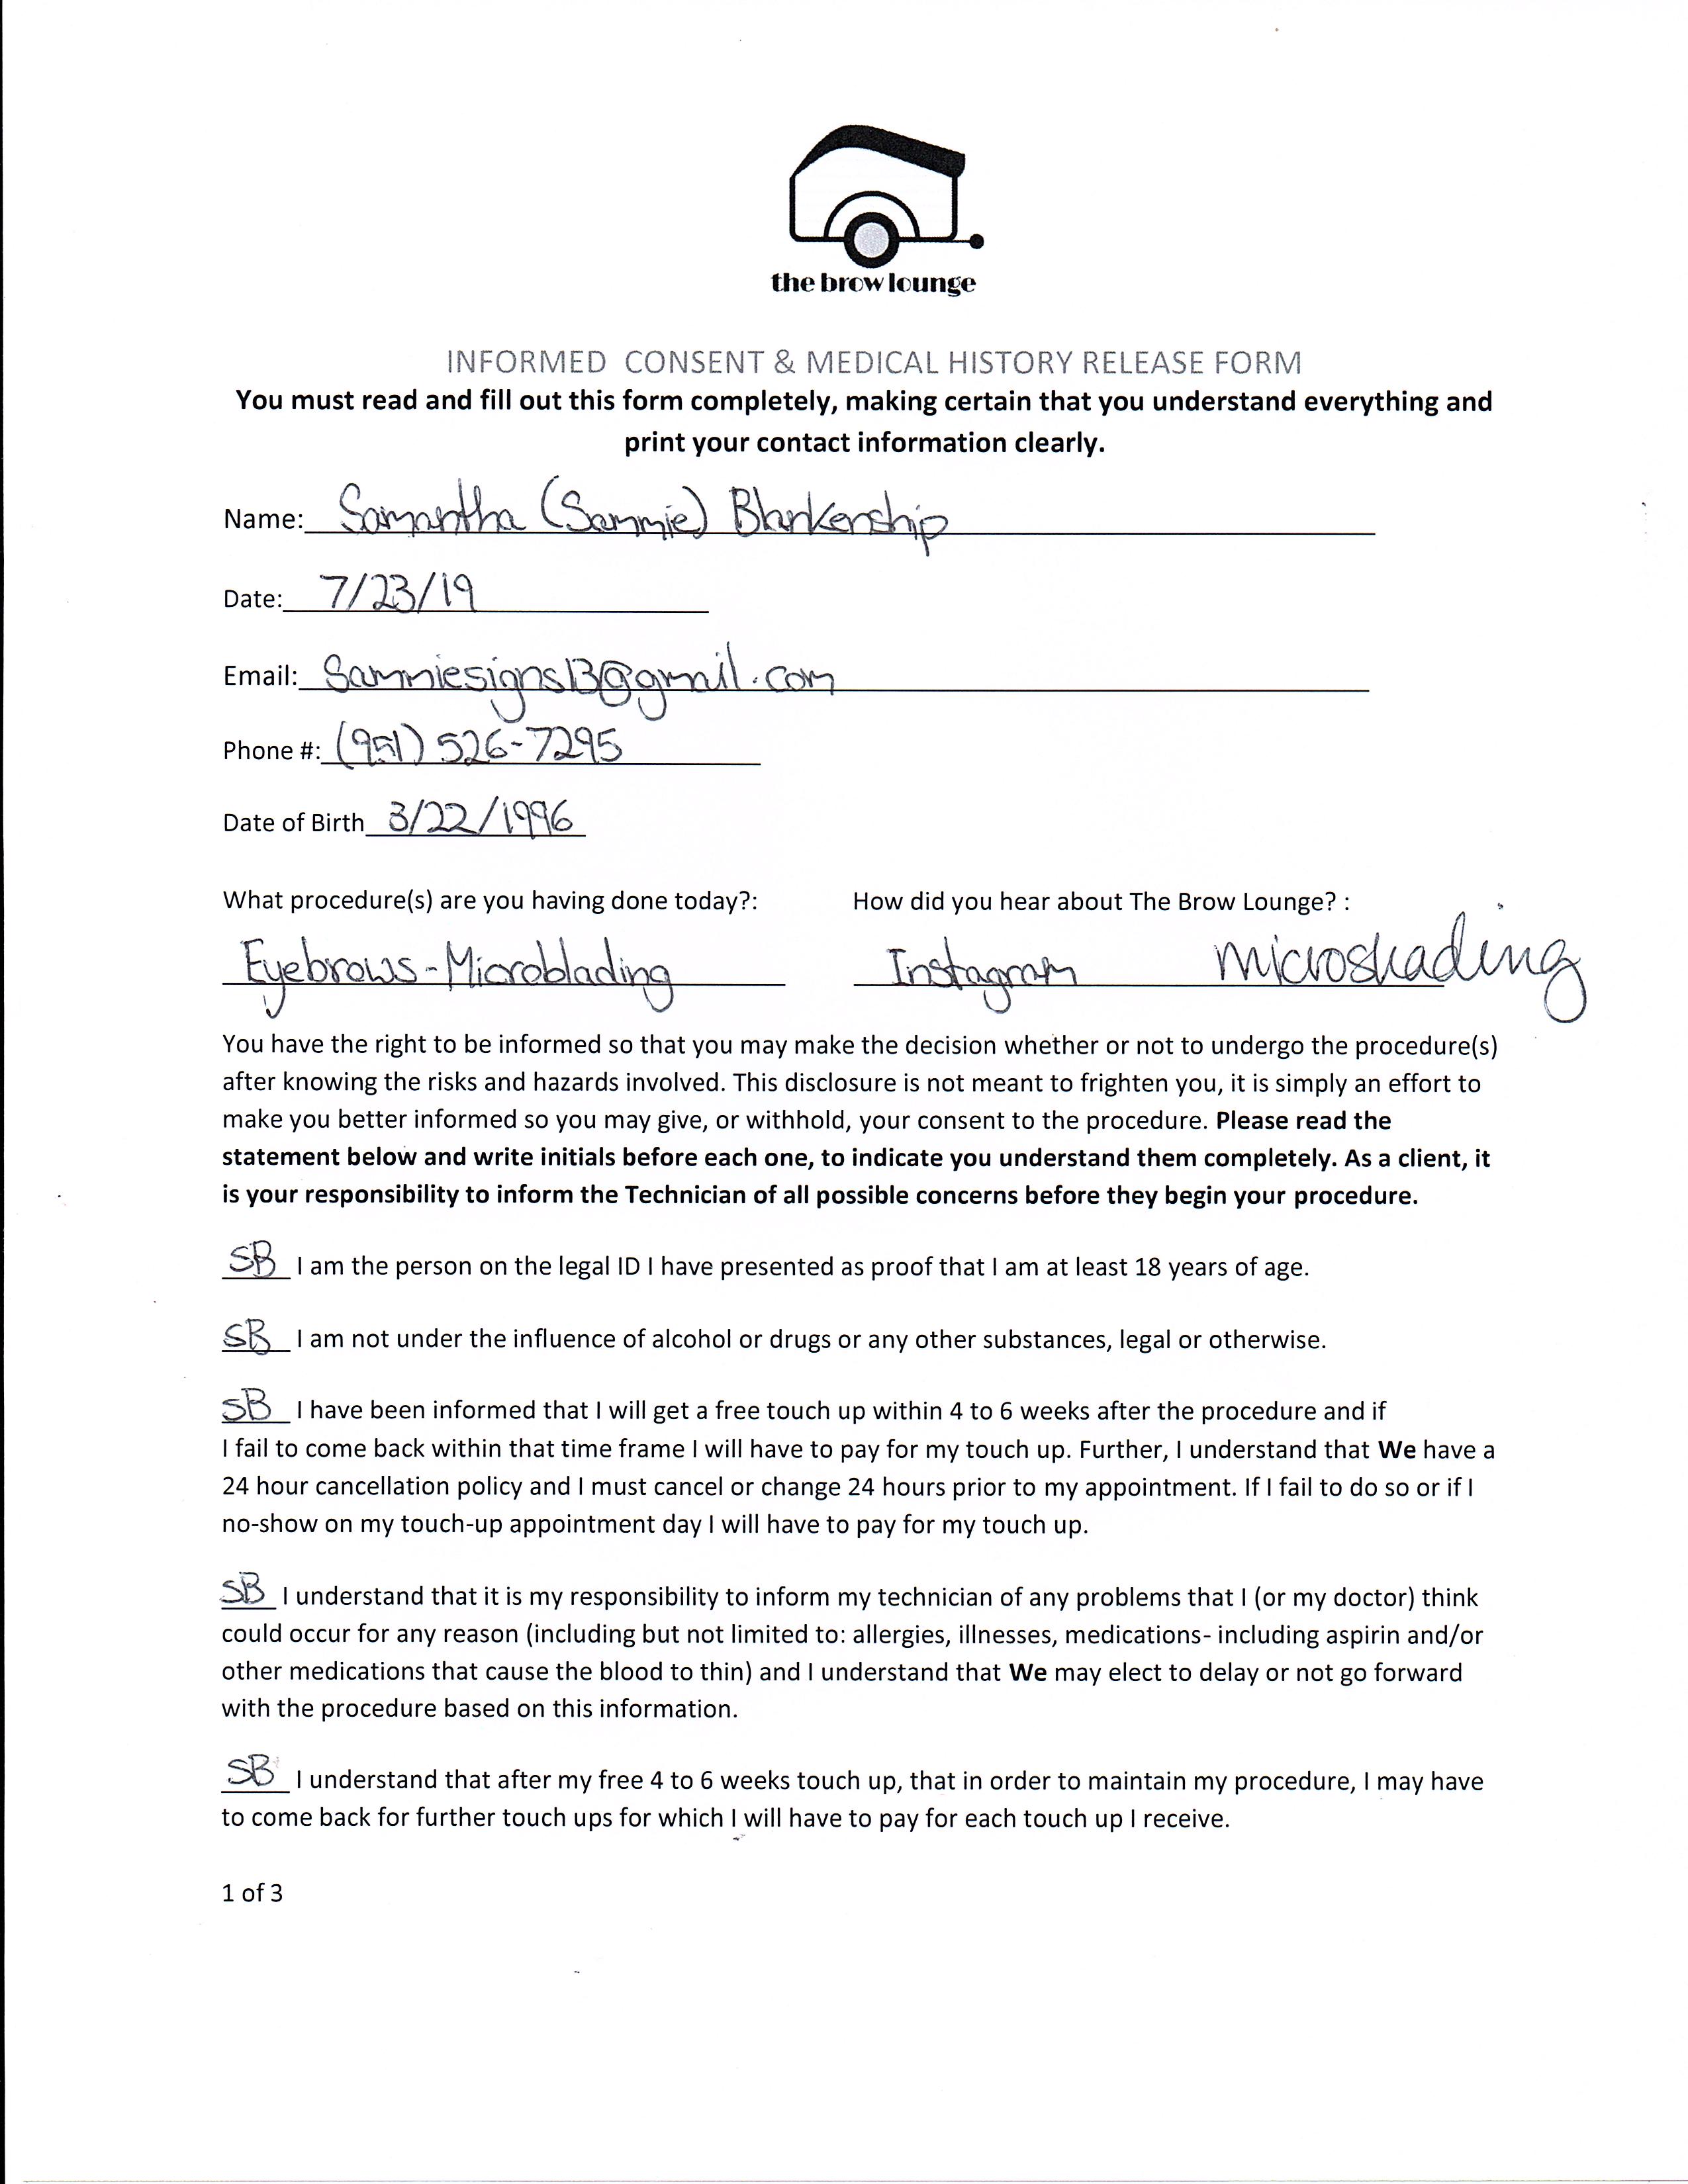 the brow lounge
INFORMED CONSENT & MEDICAL HISTORY RELEASE FORM
You must read and fill out this form completely, making certain that you understand everything and
print your contact information clearly.
Name: Samantha (Sammie) Blankenship
Date: 7/23/19
Email: Sammiesigns13@gmail.com
Phone #: (951) 526-7295
Date of Birth 3/22/1996
What procedure(s) are you having done today?: How did you hear about The Brow Lounge? :
Eyebrows-Microblading Instagram microshading
You have the right to be informed so that you may make the decision whether or not to undergo the procedure(s)
after knowing the risks and hazards involved. This disclosure is not meant to frighten you, it is simply an effort to
make you better informed so you may give, or withhold, your consent to the procedure. Please read the
statement below and write initials before each one, to indicate you understand them completely. As a client, it
is your responsibility to inform the Technician of all possible concerns before they begin your procedure.
SB I am the person on the legal ID I have presented as proof that I am at least 18 years of age.
SB I am not under the influence of alcohol or drugs or any other substances, legal or otherwise.
SB I have been informed that I will get a free touch up within 4 to 6 weeks after the procedure and if
I fail to come back within that time frame I will have to pay for my touch up. Further, I understand that We have a
24 hour cancellation policy and I must cancel or change 24 hours prior to my appointment. If I fail to do so or if I
no-show on my touch-up appointment day I will have to pay for my touch up.
SB I understand that it is my responsibility to inform my technician of any problems that I (or my doctor) think
could occur for any reason (including but not limited to: allergies, illnesses, medications- including aspirin and/or
other medications that cause the blood to thin) and I understand that We may elect to delay or not go forward
with the procedure based on this information.
SB I understand that after my free 4 to 6 weeks touch up, that in order to maintain my procedure, I may have
to come back for further touch ups for which I will have to pay for each touch up I receive.
1 of 3